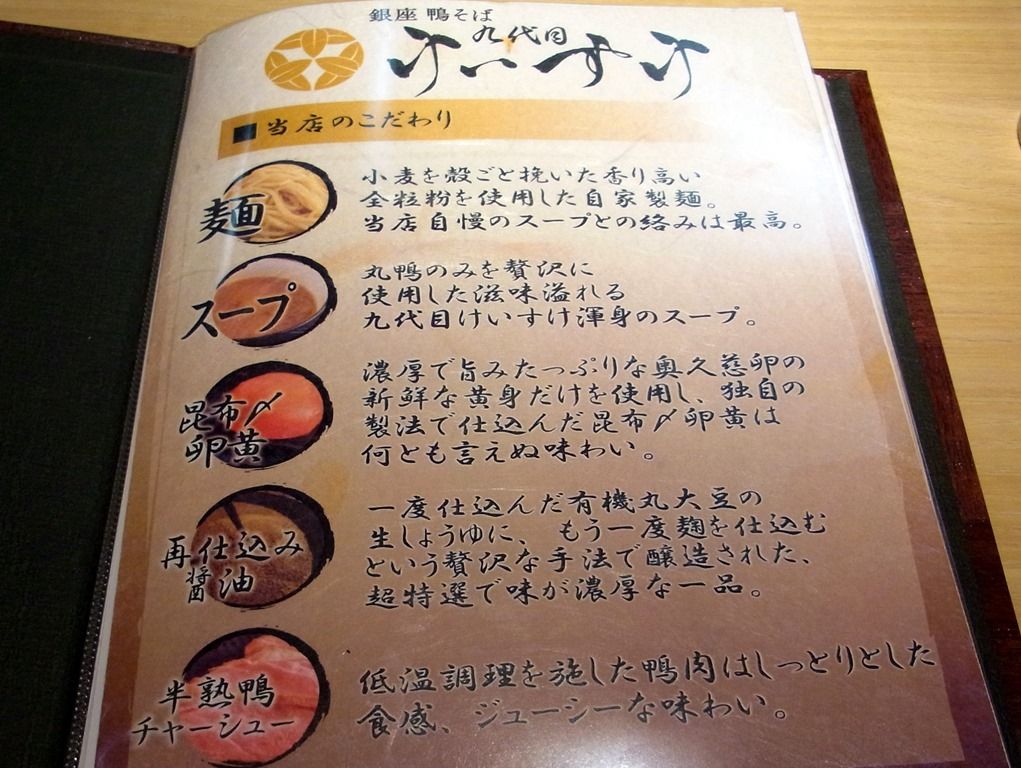 銀座 鴨そば
九代目
けいすけ
■当店のこだわり
麺
小麦を殻ごと挽いた香り高い
全粒粉を使用した自家製麺。
当店自慢のスープとの絡みは最高。
スープ
丸鴨のみを贅沢に
使用した滋味溢れる
九代目けいすけ渾身のスープ。
昆布〆
卵黄
濃厚で旨みたっぷりな奥久慈卵の
新鮮な黄身だけを使用し、独自の
製法で仕込んだ昆布〆卵黄は
何とも言えぬ味わい。
再仕込み
醤油
一度仕込んだ有機丸大豆の
生しょうゆに、もう一度麹を仕込む
という贅沢な手法で醸造された、
超特選で味が濃厚な一品。
半熟鴨
チャーシュー
低温調理を施した鴨肉はしっとりとした
食感、ジューシーな味わい。